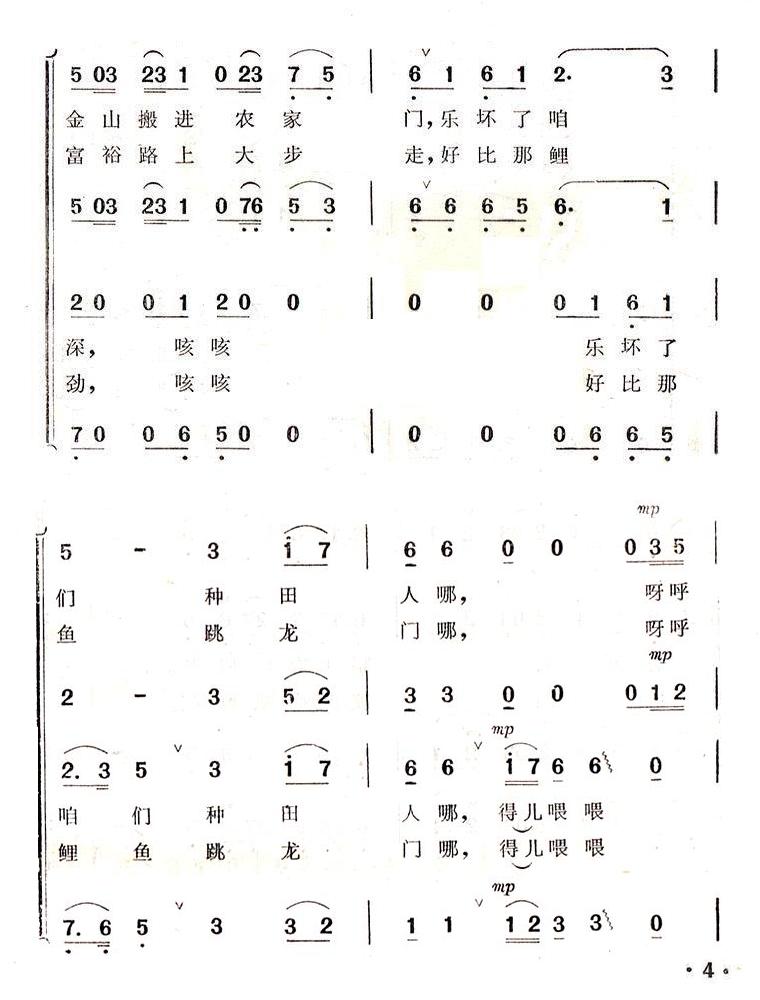 5 03 23 1 0 23 7 5 | 6 1 6 1 2. 3 |
金 山 搬 进 农 家 门, 乐 坏 了 咱
富 裕 路 上 大 步 走, 好 比 那 鲤
5 03 23 1 0 76 5 3 | 6 6 6 5 6. 1 |
2 0 0 1 2 0 0 | 0 0 0 1 6 1 |
深, 咳 咳 乐 坏 了
劲, 咳 咳 好 比 那
7 0 0 6 5 0 0 | 0 0 0 6 6 5 |
mp
5 - 3 i 7 | 6 6 0 0 0 3 5 |
们 种 田 人 哪, 呀 呼
鱼 跳 龙 门 哪, 呀 呼
mp
2 - 3 5 2 | 3 3 0 0 0 1 2 |
mp
2. 3 5 ∨ 3 i 7 | 6 6 ∨ i 7 6 6 0 |
咱 们 种 田 人 哪, 得 儿 喂 喂
鲤 鱼 跳 龙 门 哪, 得 儿 喂 喂
mp
7. 6 5 ∨ 3 3 2 | 1 1 ∨ 1 2 3 3 0 |
· 4 ·